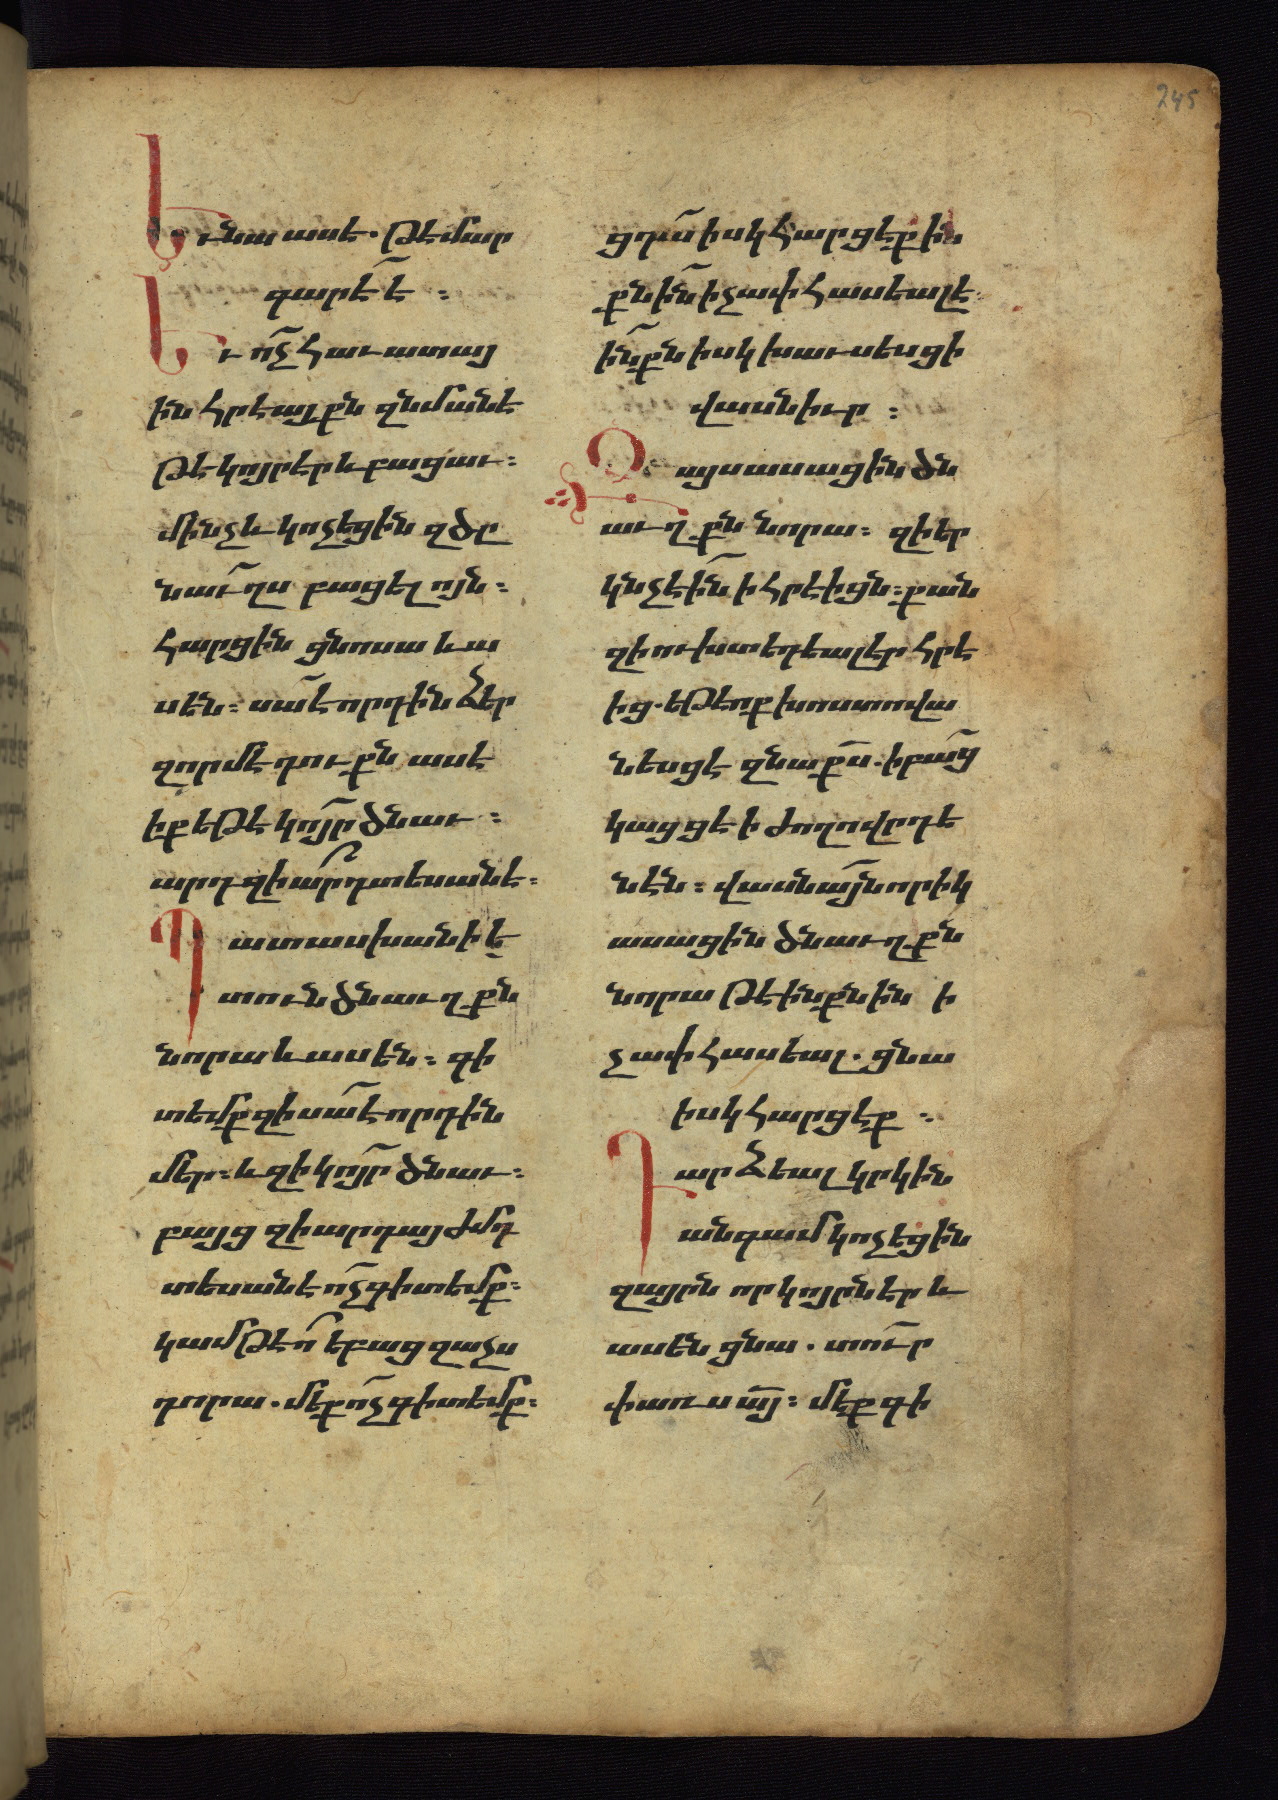 245
Եւ նա ասէ. թէ մար
գարէ է :
Եւ ոչ հաւատայ
ին հրէայքն զնմանէ
թէ կոյր էր և բացաւ :
մինչև կոչեցին զծը
նաւղս բացելոյն :
հարցին ցնոսա և ա
սեն : սա՞ է որդին ձեր
զորմէ դուքն ասէ
իք եթէ կոյր ծնաւ :
արդ զիա՞րդ տեսանէ :
Պատասխանի ե
տուն ծնաւղքն
նորա և ասեն : գի
տեմք զի սա է որդին
մեր : և զի կոյր ծնաւ :
բայց զիարդ այժմ
տեսանէ ոչ գիտեմք :
կամ թէ ո՞ եբաց զաչս
դորա . մեք ոչ գիտեմք :
ցդա իսկ հարցէք ին
քնին ի չափ հասեալ է
ինքն իսկ խաւսեսցի
վասն իւր :
Զայս ասացին ծն
աւղքն նորա : զի եր
կնչէին ի հրէիցն : քան
զի ուխտ եդեալ էր հրէ
ից . եթէ ոք խոստովա
նեսցէ զնա քս . ի բաց
կացցէ ի ժողովրդե
նէն : վասն այնորիկ
ասացին ծնաւղքն
նորա թէ ինքնին ի
չափ հասեալ . ցնա
իսկ հարցէք :
Դարձեալ կրկին
անգամ կոչեցին
զայրն որ կոյրն էր և
ասեն ցնա . տուր
փառս այ : մեք գի